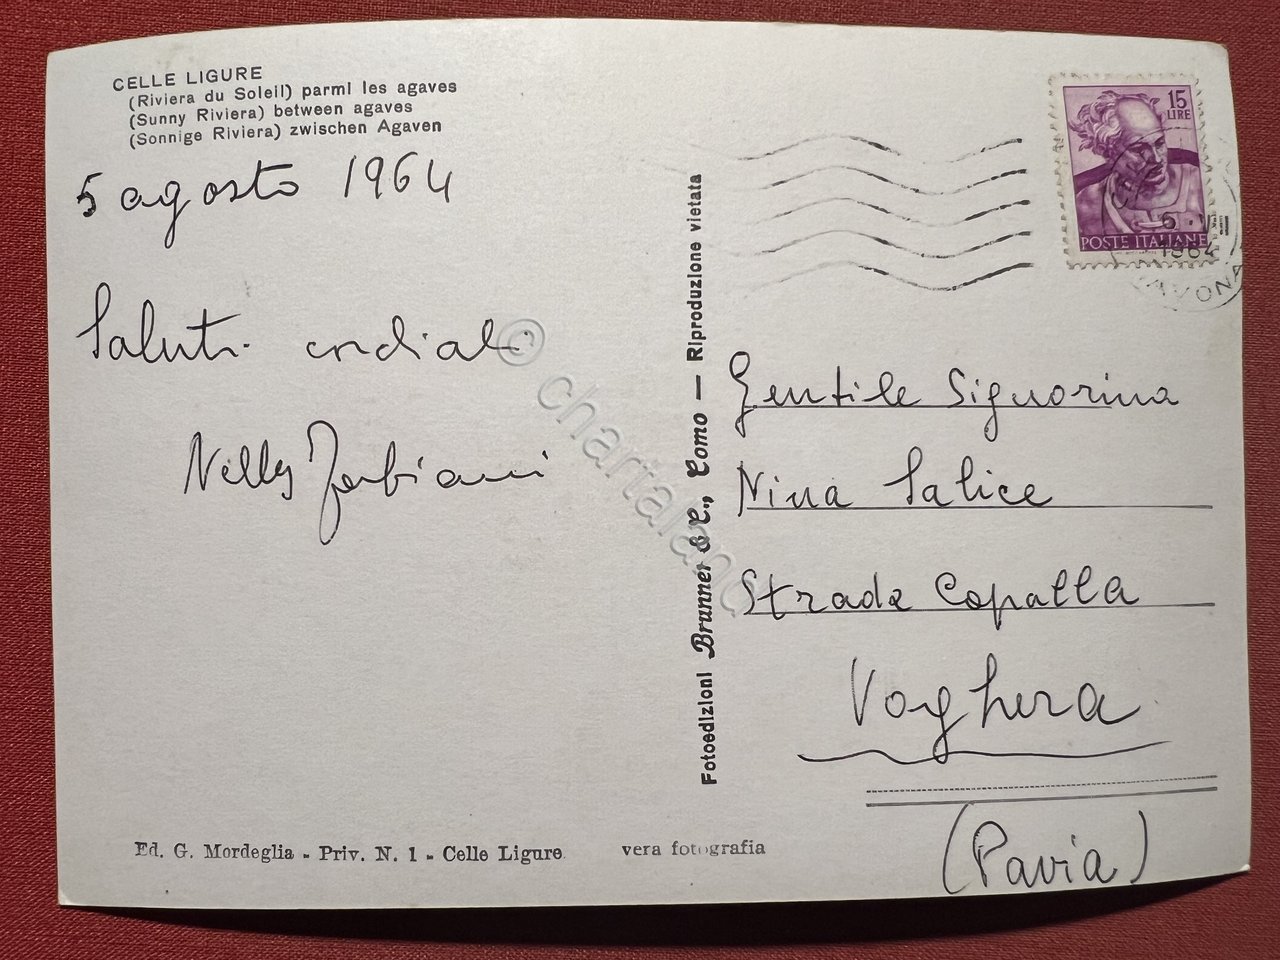 CELLE LIGURE
(Riviera du Soleil) parmi les agaves
(Sunny Riviera) between agaves
(Sonnige Riviera) zwischen Agaven
5 agosto 1964
Saluti cordiali
Nelly
15
LIRE
POSTE ITALIANE
1964
SAVONA
Fotoedizioni Brunner & C., Como — Riproduzione vietata
Gentile Signorina
Nina Salice
Strada Copalla
Voghera
(Pavia)
Ed. G. Mordeglia - Priv. N. 1 - Celle Ligure
vera fotografia
© chartaland